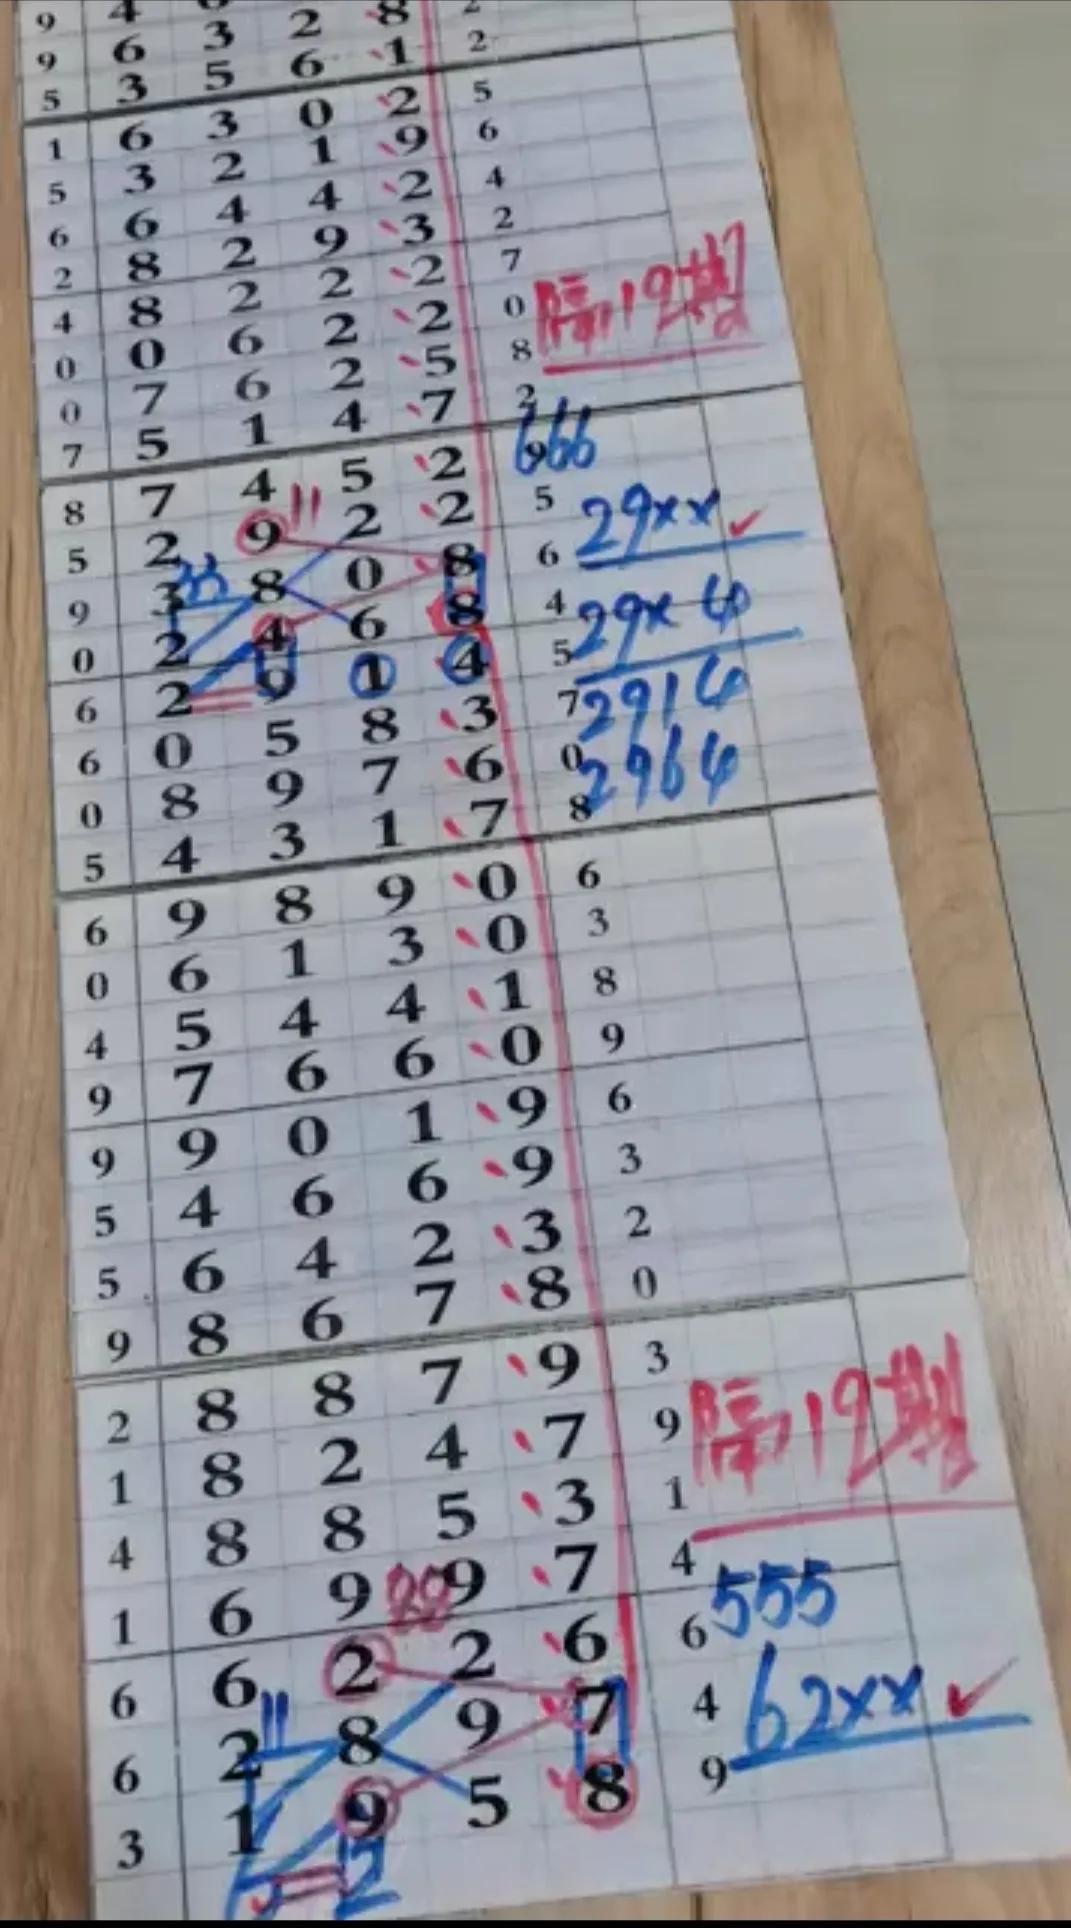 9 4
9 6 3 2 8 2
5 3 5 6 1 2
1 6 3 0 2 5
5 3 2 1 9 6
6 6 4 4 2 4
2 8 2 9 3 2
4 8 2 2 2 7
0 0 6 2 2 0
隔19期
0 7 6 2 5 8
7 5 1 4 7 2
8 7 4 5 2 9
666
5 2 9 2 2 5
29xx
9 3 8 0 8 6
33
0 2 4 6 8 4
29x4
6 2 9 1 4 5
2914
6 0 5 8 3 7
2964
0 8 9 7 6 0
5 4 3 1 7 8
6 9 8 9 0 6
0 6 1 3 0 3
4 5 4 4 1 8
9 7 6 6 0 9
9 9 0 1 9 6
5 4 6 6 9 3
5 6 4 2 3 2
9 8 6 7 8 0
2 8 8 7 9 3
1 8 2 4 7 9
隔19期
4 8 8 5 3 1
1 6 9 9 7 4
88
555
6 6 2 2 6 6
6 2 8 9 7 4
62xx
3 1 9 5 8 9
2